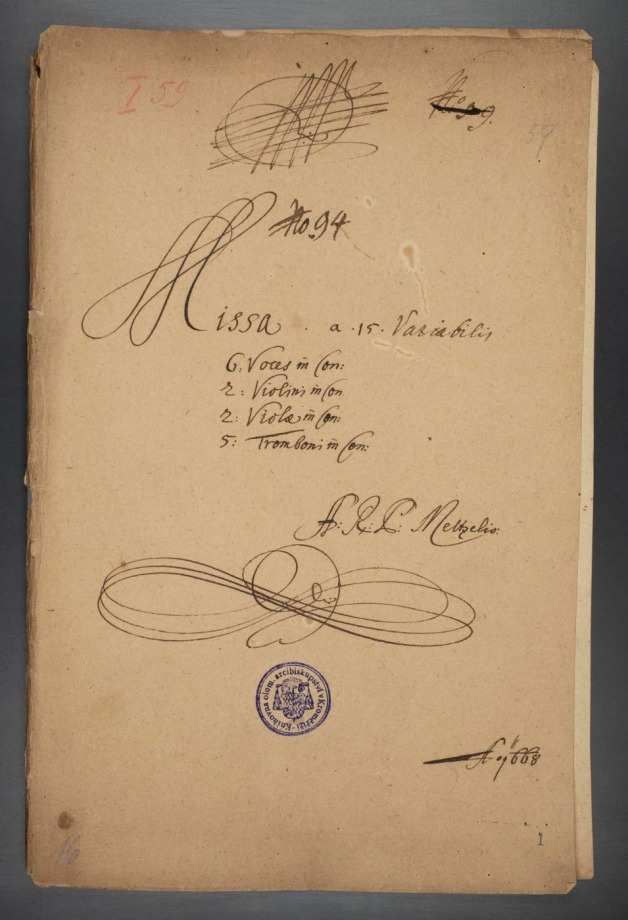 I 59
No 99.
59
No 94
Missa . a . 15 . Variabilis
6. Voces in Con:
2: Violini in Con
2: Violæ in Con:
5: Tromboni in Con:
A: R: P: Meltzelio:
Knihovna olom. arcibiskupství v Kroměříži
A 668
16
1